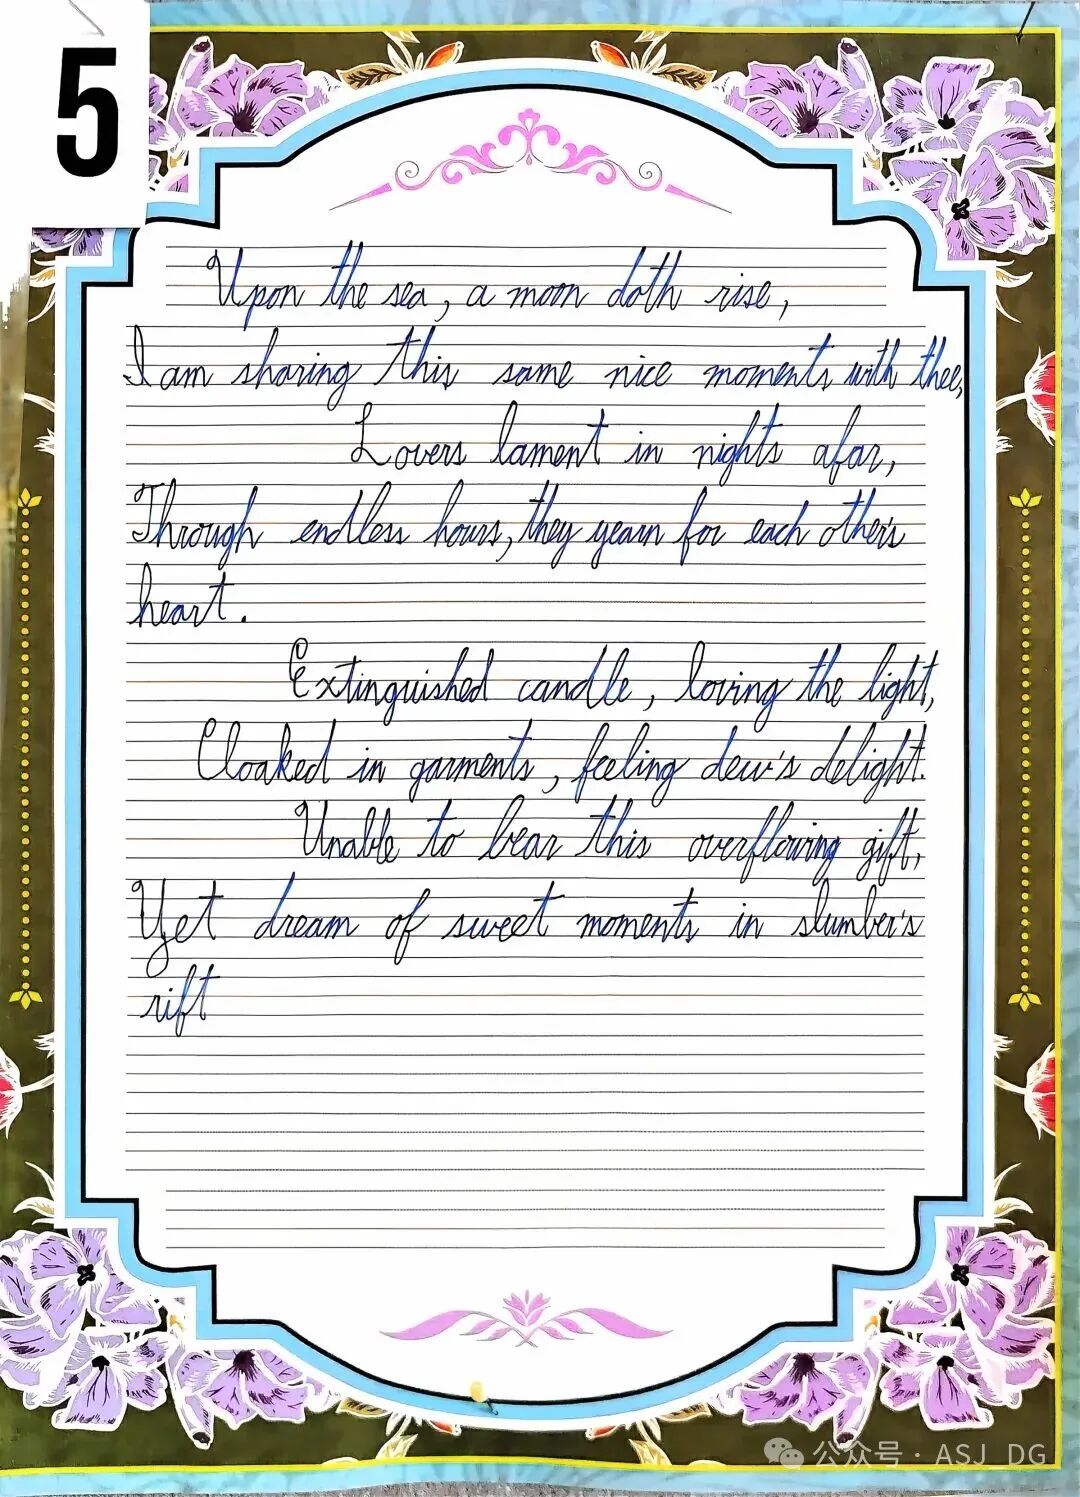 5
Upon the sea, a moon doth rise,
I am sharing this same nice moments with thee,
Lovers lament in nights afar,
Through endless hours, they yearn for each other's
heart.
Extinguished candle, loving the light,
Cloaked in garments, feeling dew's delight.
Unable to bear this overflowing gift,
Yet dream of sweet moments in slumber's
rift
公众号 · ASJ_DG